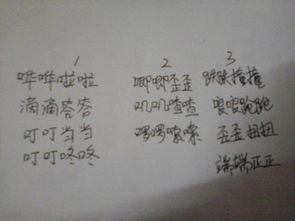 1
哗哗啦啦
滴滴答答
叮叮当当
叮叮咚咚
2
唧唧歪歪
叽叽喳喳
3
跌跌撞撞
歪歪扭扭
端端正正